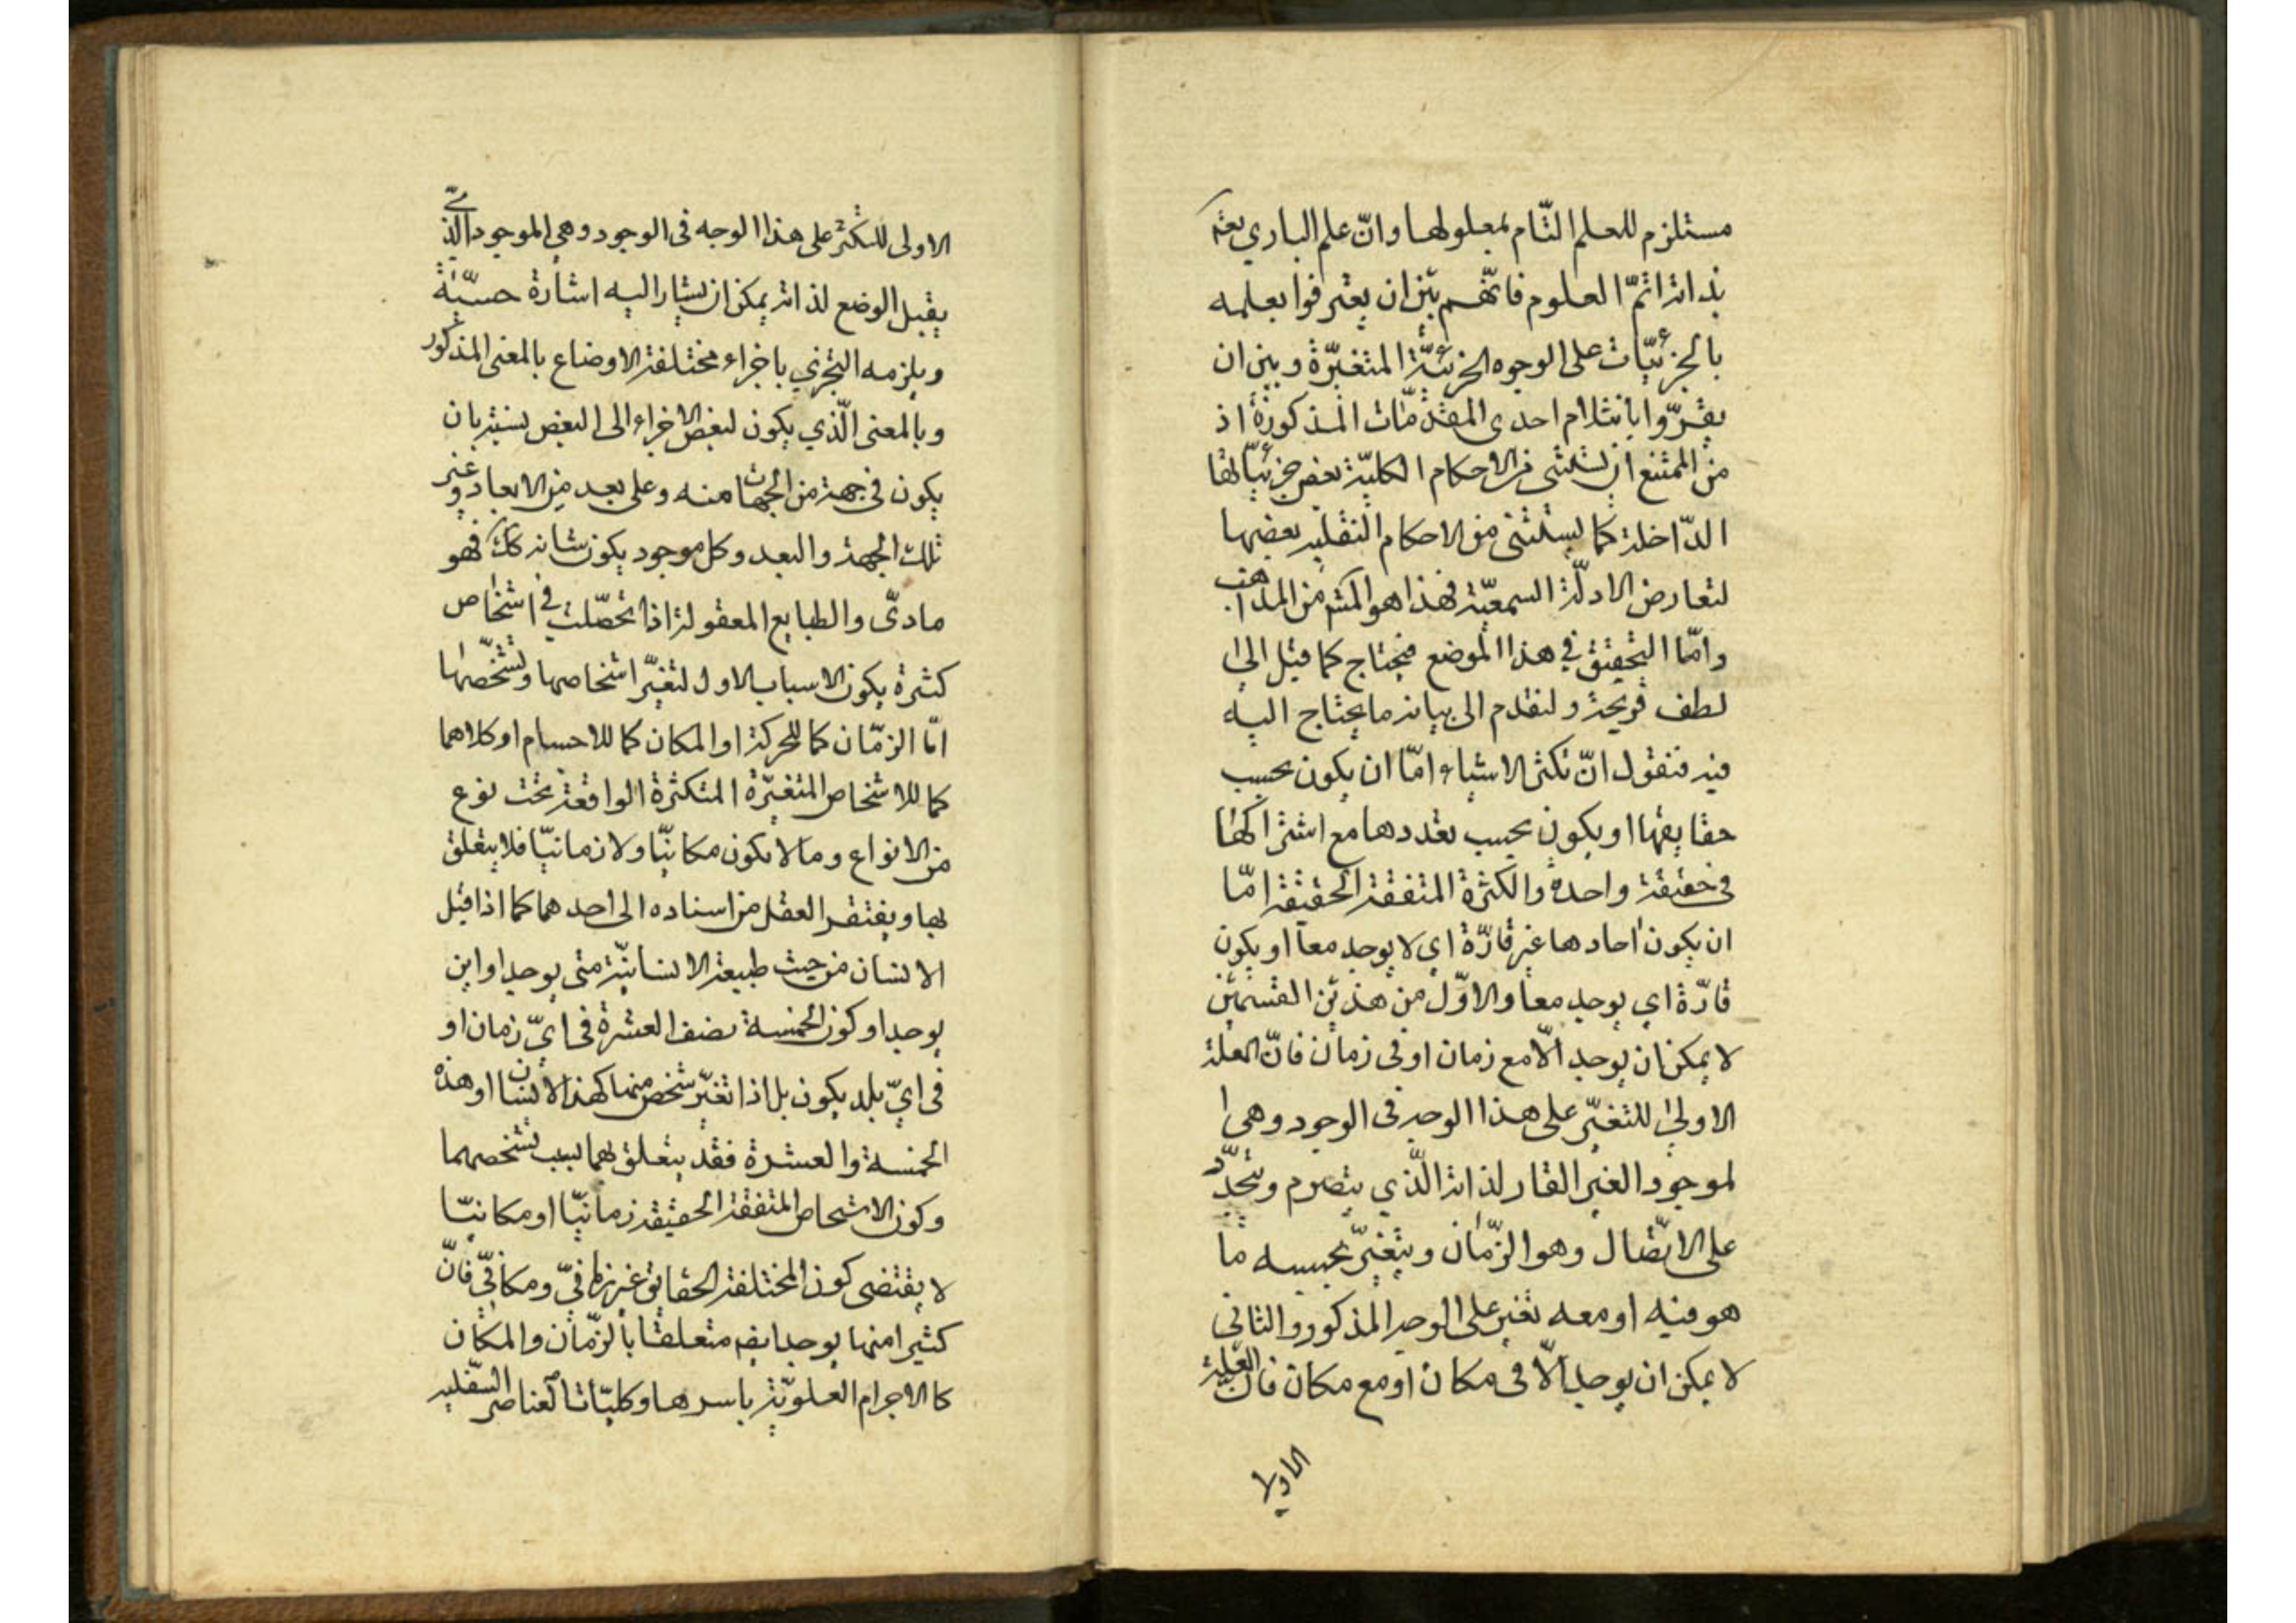 مستلزم للعلم التّام بمعلولها وانّ علم الباري تعم
بذاته اتمّ العلوم فانّهم بين ان يعترفوا بعلمه
بالجزئيّات على الوجوه الجزئيّة المتغيّرة وبين ان
يقرّوا بانثلام احدى المقدّمات المذكورة اذ
من الممتنع ان يستثنى من الاحكام الكليّة بعض جزئيّاتها
الدّاخلة كما يستثنى من الاحكام النقليه بعضها
لتعارض الادلّة السمعيّة فهذا هو المشه من المذاهب
وامّا التحقيق في هذا الموضع فيحتاج كما قيل الى
لطف قريحة ولنقدم الى بيانه ما يحتاج اليه
فيه فنقول انّ تكثر الاشياء امّا ان يكون بحسب
حقايقها او يكون بحسب تعددها مع اشتراكها
في حقيقة واحدة والكثرة المتفقة الحقيقة امّا
ان يكون احادها غير قارّة اي لا يوجد معا او يكون
قارّة اي يوجد معا والاوّل من هذين القسمين
لا يمكن ان يوجد الّا مع زمان او في زمان فانّ العلة
الاولى للتغيّر على هذا الوجه في الوجود وهي ا
لموجود الغير القار لذاته الّذي يتصرم ويتجدّد
على الاتّصال وهو الزّمان ويتغيّر بحسبه ما
هو فيه او معه تغير على الوجه المذكور والثاني
لا يمكن ان يوجد الّا في مكان او مع مكان فان العلة
الاولى
الاولى للتكثر على هذا الوجه في الوجود وهي الموجود الّذي
يقبل الوضع لذاته يمكن ان يشار اليه اشارة حسيّة
ويلزمه التجزي باجزاء مختلفة الاوضاع بالمعنى المذكور
وبالمعنى الّذي يكون لبعض الاجزاء الى البعض نسبة بان
يكون في جهة من الجهات منه وعلى بعد من الابعاد وغير
تلك الجهة والبعد وكل موجود يكون شانه كك فهو
مادىّ والطبايع المعقولة اذا تحصّلت في اشخاص
كثيرة يكون الاسباب الاول لتغيّر اشخاصها وتشخّصها
امّا الزمّان كما للحركة او المكان كما للاجسام او كلاهما
كما للاشخاص المتغيّرة المتكثرة الواقعة تحت نوع
من الانواع وما لا يكون مكانيّا ولا زمانيّا فلا يتعلق
بها ويفتقر العقل من اسناده الى احدهما كما اذا قيل
الانسان من حيث طبيعة الانسانيّة متى يوجد او اين
يوجد او كون الخمسة نصف العشرة في ايّ زمان او
في ايّ بلد يكون بل اذا تغيّر شخص منها كهذا الانسان او هذه
الخمسة والعشرة فقد يتعلق بهما بسبب تشخصهما
وكون الاشخاص المتفقة الحقيقة زمانيّا او مكانيّا
لا يقتضى كون المختلفة الحقايق غير زمانيّ ومكانيّ فانّ
كثيرا منها يوجد ايضا متعلقا بالزّمان والمكان
كالاجرام العلويّة باسرها وكليّات العناصر السّفليه